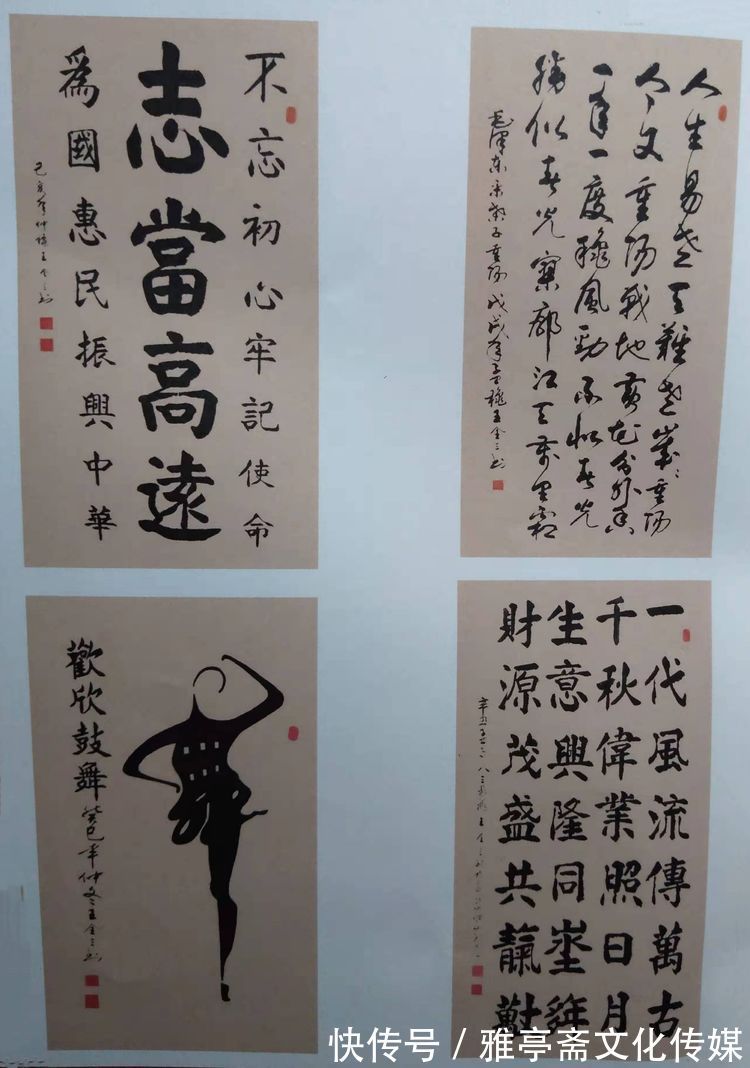 不忘初心牢記使命
志當高遠
爲國惠民振興中華
己亥年仲 王金三书
人生易老天難老歲〻重陽
今又重陽戰地黃花分外香
一年一度穐風勁不似春光
勝似春光寥廓江天萬里霜
毛澤東采桑子重陽戊戌年孟穐王金三书
歡欣鼓舞
癸巳年仲冬王金三书
一代風流傳萬古
千秋偉業照日月
生意興隆同
財源茂盛共
快传号 / 雅亭斋文化传媒